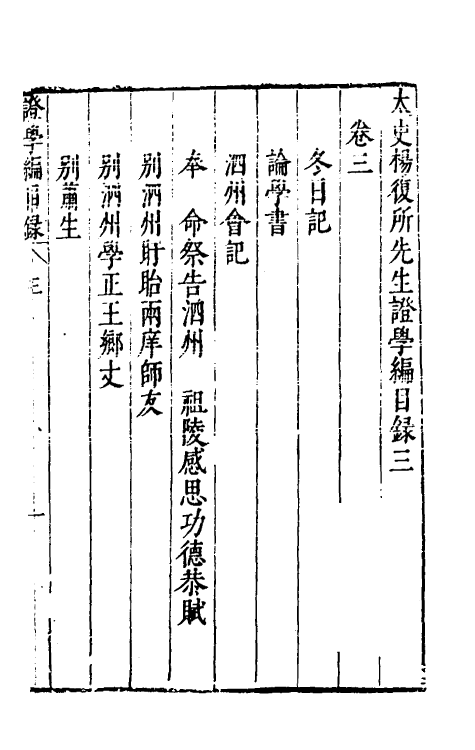 太史楊復所先生證學編目録三
卷三
冬日記
論學書
泗州會記
奉　命祭告泗州　祖陵感思功德恭賦
别泗州盱眙兩庠師友
别泗州學正王鄉丈
别蕭生
證學編目録　三